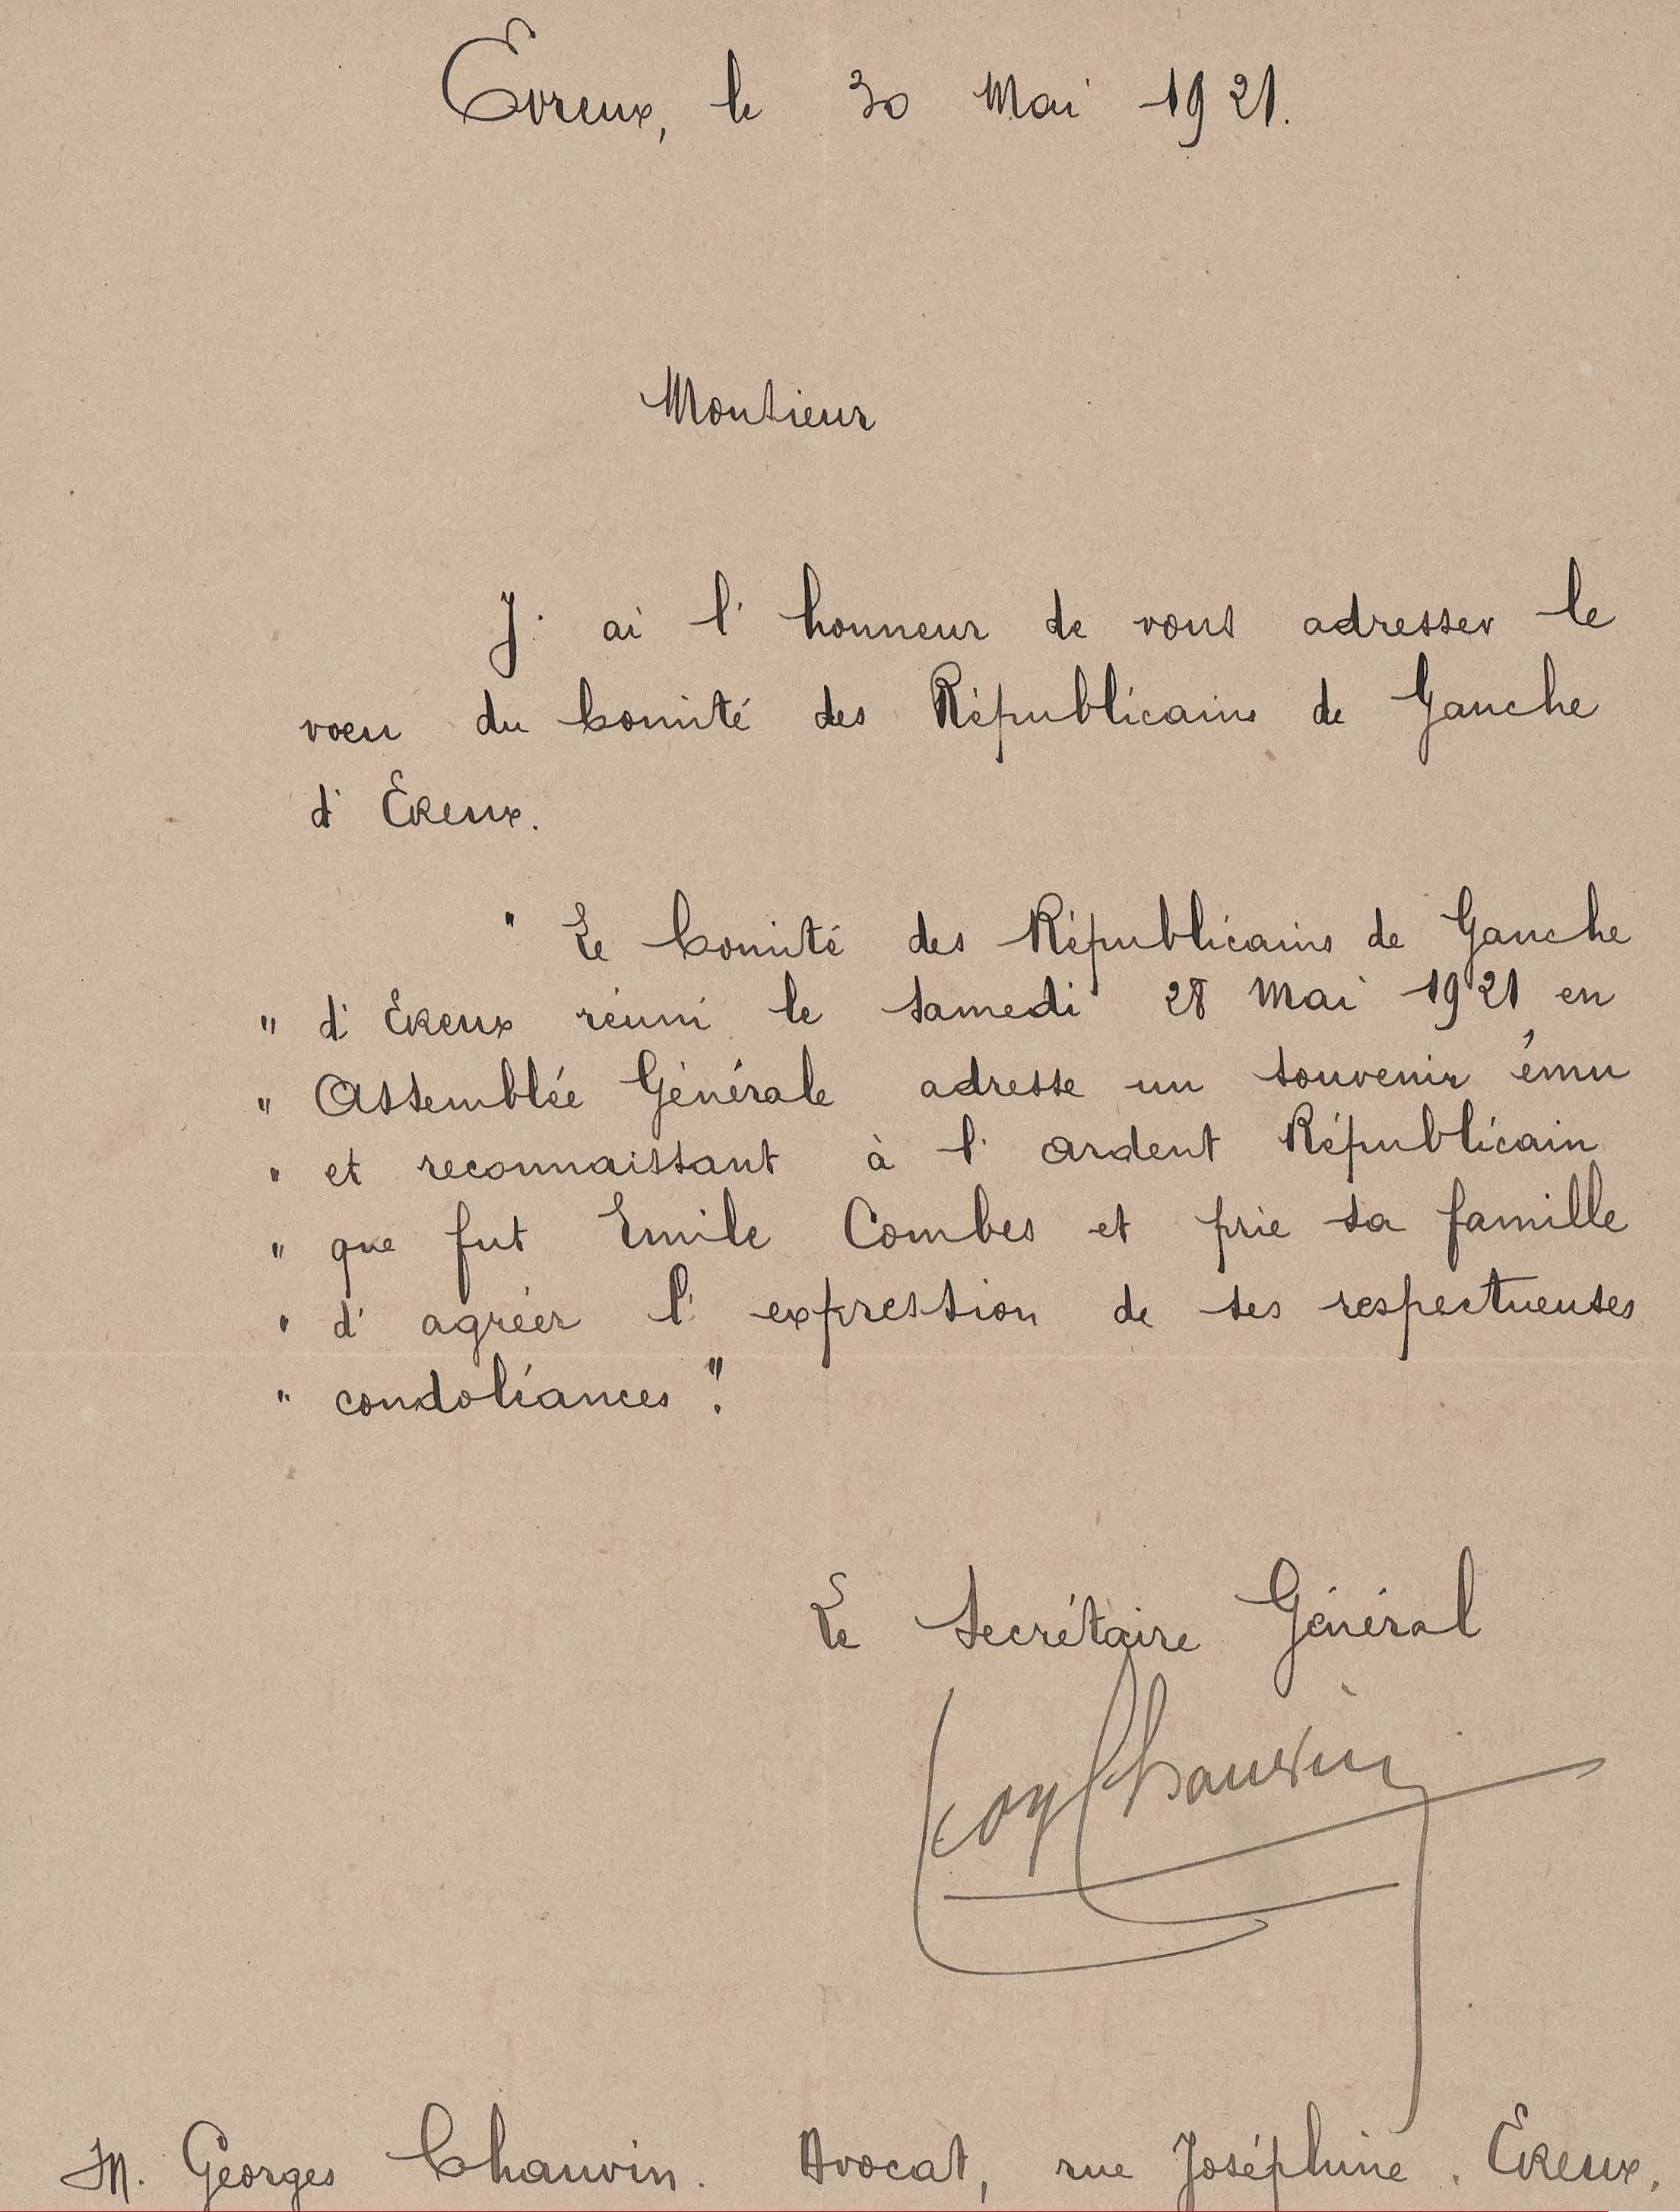 Evreux, le 30 Mai 1921.
Monsieur
J' ai l' honneur de vous adresser le
voeu du Comité des Républicains de Gauche
d' Evreux.
" Le Comité des Républicains de Gauche
" d' Evreux réuni le samedi 28 Mai 1921 en
" Assemblée Générale adresse un souvenir ému
" et reconnaissant à l' ardent Républicain
" que fut Emile Combes et prie sa famille
" d' agréer l' expression de ses respectueuses
" condoléances ".
Le Secrétaire Général
Chauvin
M. Georges Chauvin. Avocat, rue Joséphine. Evreux.